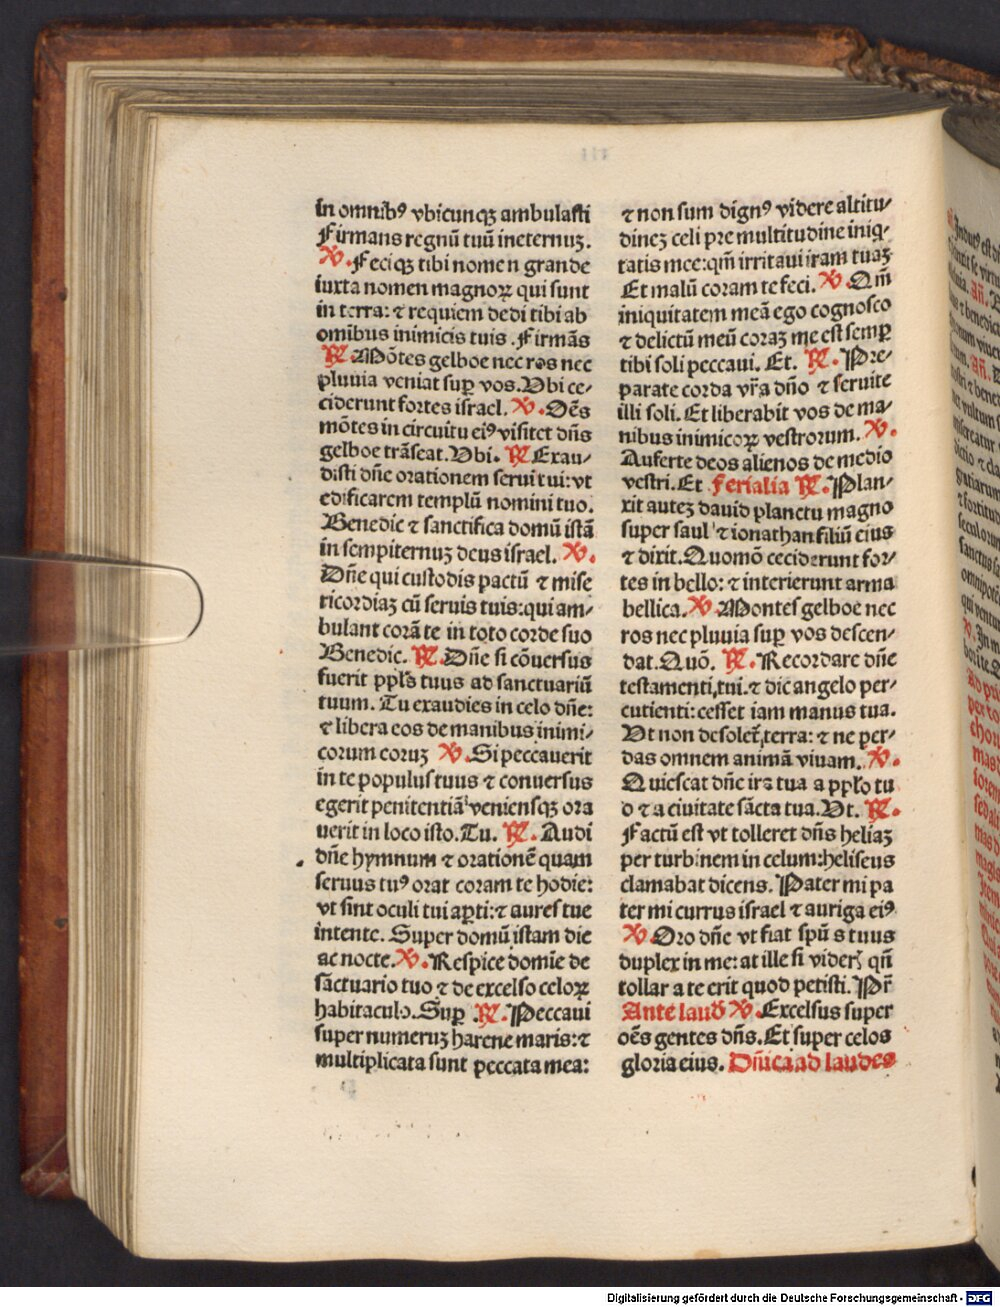 in omnibꝰ vbicunqꝫ ambulasti
Firmans regnū tuū ineternuꝫ.
℣. Feciqꝫ tibi nomen grande
iuxta nomen magnoꝝ qui sunt
in terra: ⁊ requiem dedi tibi ab
omībus inimicis tuis . Firmās
℟. Mōtes gelboe nec ros nec
pluuia veniat suꝑ vos. Vbi ce⸗
ciderunt fortes israel. ℣. Oēs
mōtes in circuitu eiꝰ visitet dn̄s
gelboe trāseat. Vbi. ℟ Exau⸗
disti dn̄e orationem serui tui: vt
edificarem templū nomini tuo.
Benedic ⁊ sanctifica domū istā
in sempiternuꝫ deus israel. ℣.
Dn̄e qui custodis pactū ⁊ mise
ricordiaꝫ cū seruis tuis: qui am⸗
bulant corā te in toto corde suo
Benedic. ℟. Dn̄e si cōuersus
fuerit ppl̄s tuus ad sanctuariū
tuum. Tu exaudies in celo dn̄e:
⁊ libera eos de manibus inimi⸗
corum coruꝫ ℣. Si peccauerit
in te populus tuus ⁊ conuersus
egerit penitentiā veniensqꝫ ora
uerit in loco isto. Tu. ℟. Audi
dn̄e hymnum ⁊ orationē quam
seruus tuꝰ orat coram te hodie:
vt sint oculi tui aꝑti: ⁊ aures tue
intente. Super domū istam die
ac nocte. ℣. Respice domīe de
sāctuario tuo ⁊ de excelso celoꝝ
habitaculo. Suꝑ ℟. Peccaui
super numeruꝫ harene maris: ⁊
multiplicata sunt peccata mea:
⁊ non sum dignꝰ videre altitu⸗
dineꝫ celi pre multitudine iniq⸗
tatis mee: qm̄ irritaui iram tuaꝫ
Et malū coram te feci. ℣. Qm̄
iniquitatem meā ego cognosco
⁊ delictū meū coraꝫ me est semꝑ
tibi soli peccaui. Et. ℟. Pre⸗
parate corda vr̄a dn̄o ⁊ seruite
illi soli. Et liberabit vos de ma⸗
nibus inimicoꝝ vestrorum. ℣.
Auferte deos alienos de medio
vestri. Et Ferialia ℟. Plan⸗
xit auteꝫ dauid planctu magno
super saul ⁊ ionathan filiū eius
⁊ dixit. Quomō ceciderunt for⸗
tes in bello: ⁊ interierunt arma
bellica. ℣. Montes gelboe nec
ros nec pluuia suꝑ vos descen⸗
dat. Quō. ℟. Recordare dn̄e
testamenti tui. ⁊ dic angelo per⸗
cutienti: cesset iam manus tua.
Vt non desolet̄ terra: ⁊ ne per⸗
das omnem animā viuam. ℣.
Quiescat dn̄e ira tua a ppl̄o tu
o ⁊ a ciuitate sācta tua. Vt. ℟.
Factū est vt tolleret dn̄s heliaꝫ
per turbinem in celum: heliseus
clamabat dicens. Pater mi pa
ter mi currus israel ⁊ auriga eiꝰ
℣. Oro dn̄e vt fiat spūs tuus
duplex in me: at ille si viderꝭ qn̄
tollar a te erit quod petisti. Pr̄
Ante laud̄ ℣. Excelsus super
oēs gentes dn̄s. Et super celos
gloria eius. Dn̄ica ad laudes
Digitalisierung gefördert durch die Deutsche Forschungsgemeinschaft - DFG